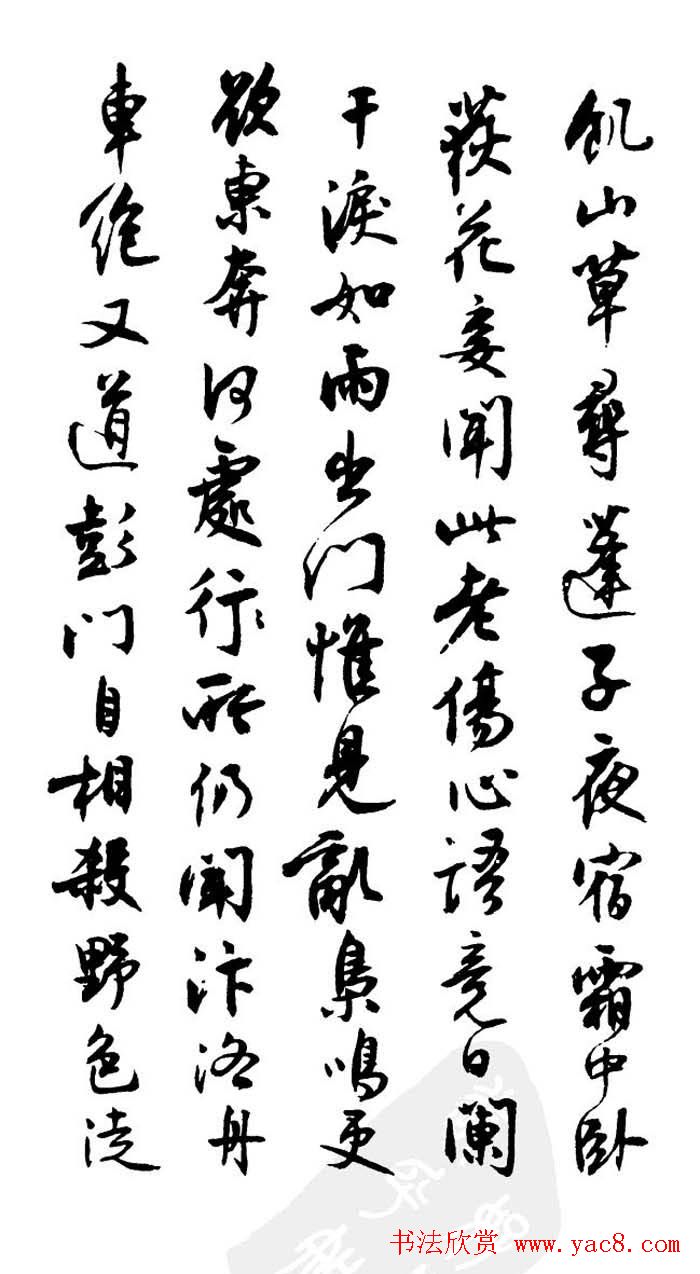 飢山草尋蓬子夜宿霜中卧
荻花妾聞此老傷心語竟日闌
干淚如雨出門惟見亂梟鳴更
欲東奔何處行所仍聞汴洛舟
車絶又道彭門自相殺野色徒
书法欣赏 www.yac8.com